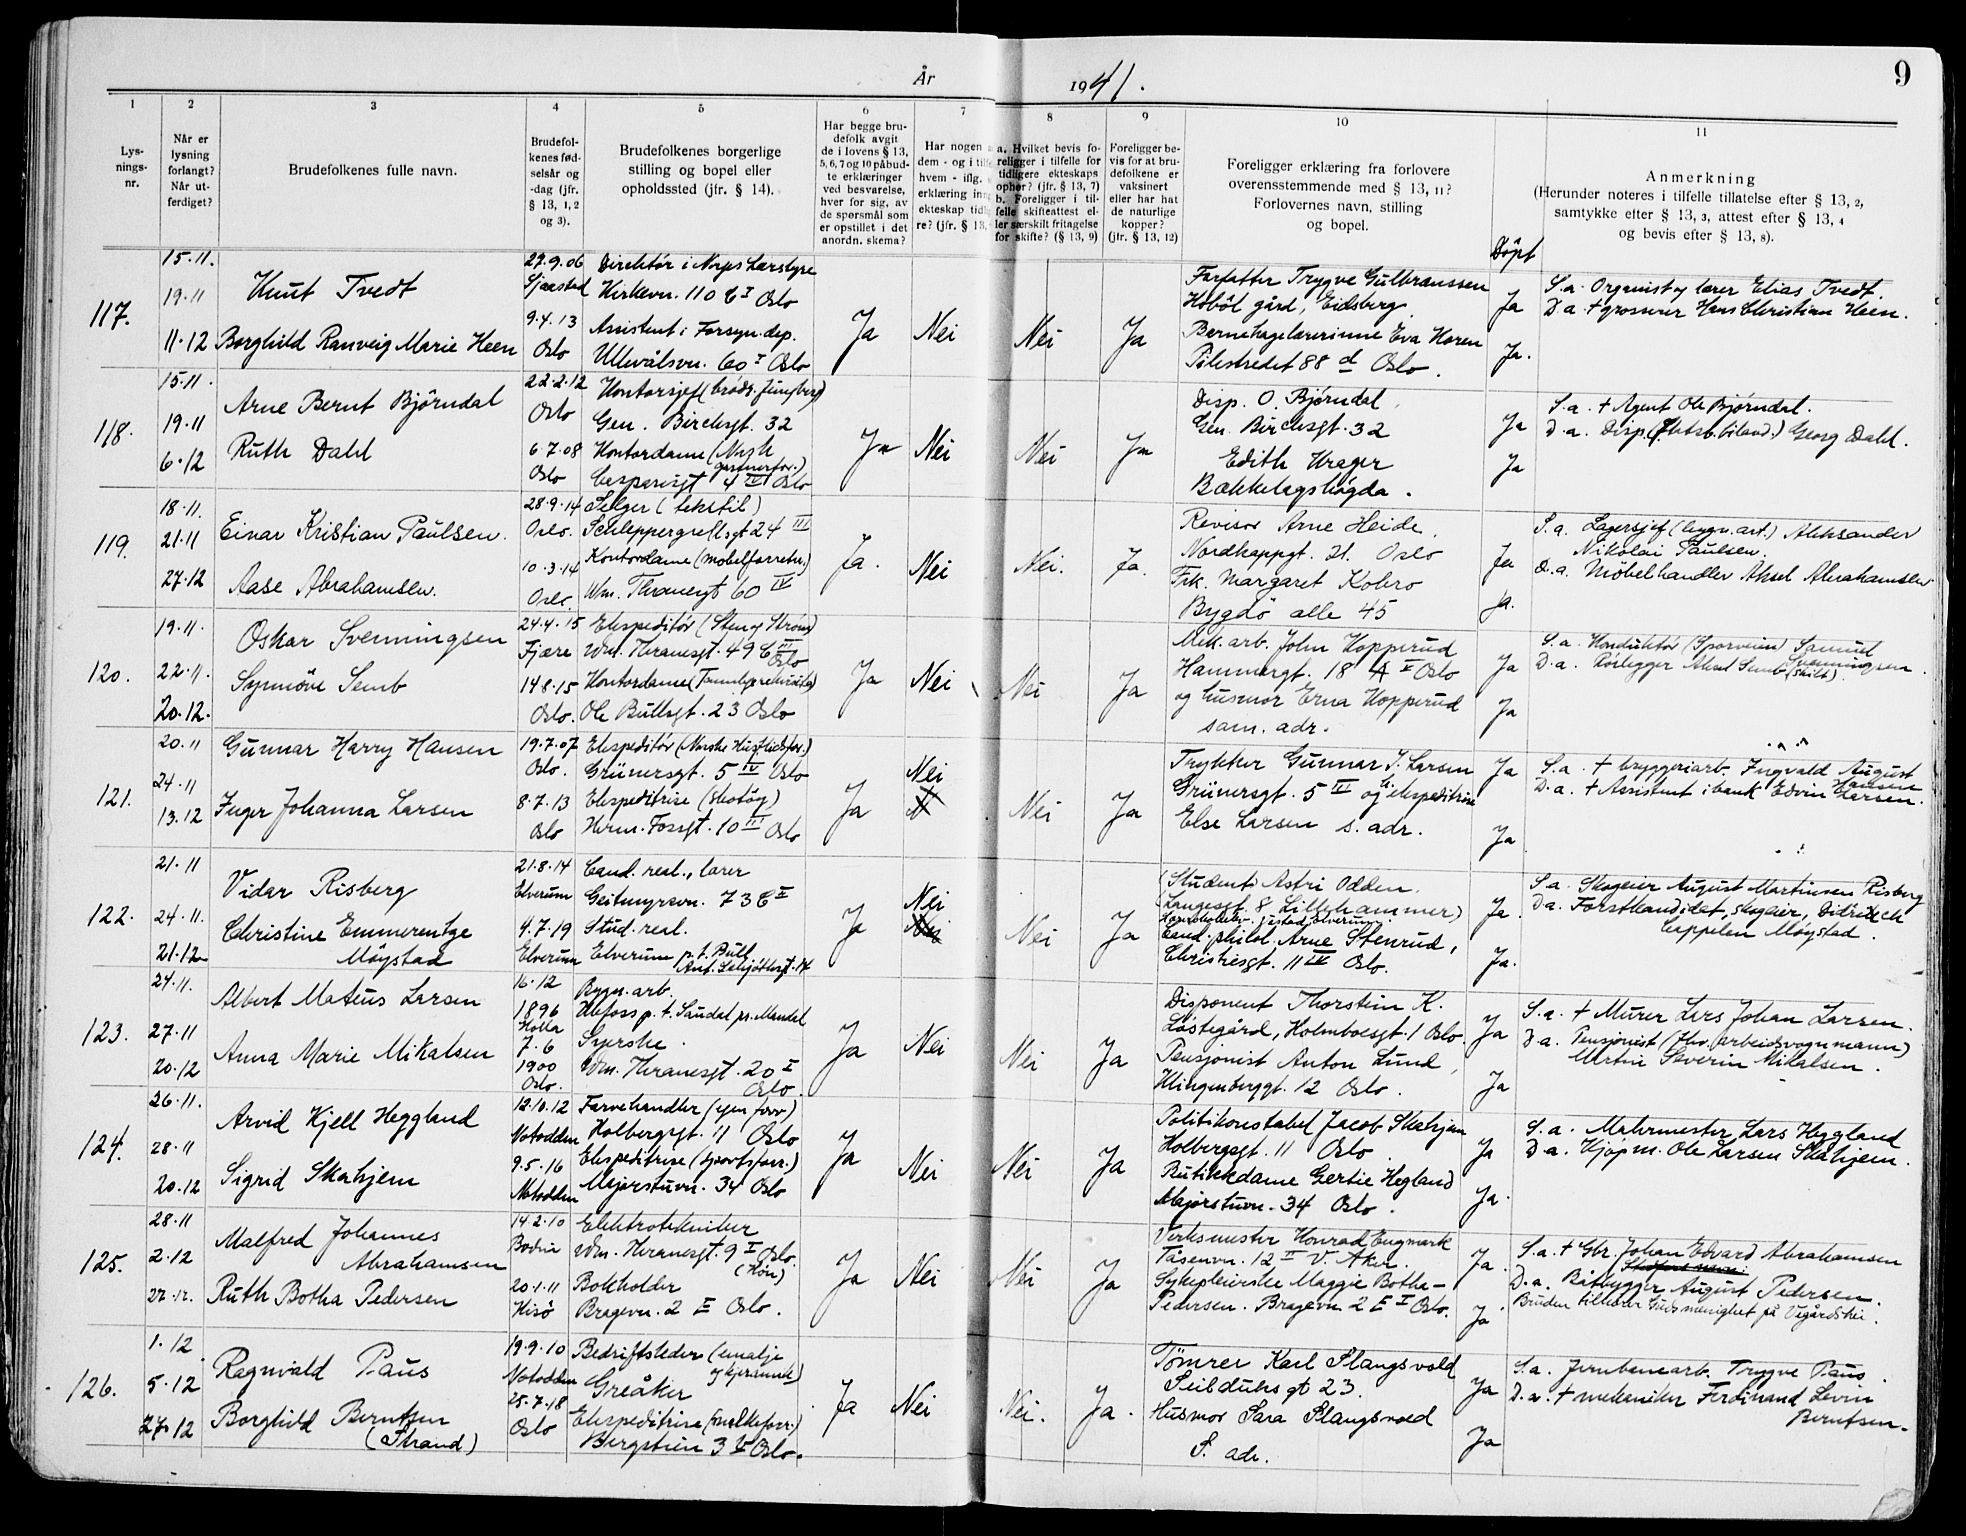 År 1941.
9
1
2
3
4
5
6
7
8
9
10
11
Lys-
nings-
nr.
Når er
lysning
forlangt?
Når ut-
ferdiget?
Brudefolkenes fulle navn.
Brudefol-
kenes fød-
selsår og
-dag (jfr.
§ 13, 1, 2
og 3).
Brudefolkenes borgerlige
stilling og bopel eller
opholdssted (jfr. § 14).
Har begge bru-
defolk avgit
de i lovens § 13,
5, 6, 7 og 10 påbud-
te erklæringer
ved besvarelse,
hver for sig, av
de spørsmål som
er opstillet i det
anordn. skema?
Har nogen a
dem - og i tilf
hvem - iflg.
erklæring inng
ekteskap tidlig
re? (jfr. § 13,
a. Hvilket bevis fo-
religger i tilfelle for
tidligere ekteskaps
ophør? (jfr. § 13, 7)
b. Foreligger i til-
felle skifteattest el-
ler særskilt fritagelse
for skifte? (§ 13, 9)
Foreligger be-
vis for at bru-
defolkene er
vaksinert
eller har hat
de naturlige
kopper?
(jfr. § 13, 12)
Foreligger erklæring fra forlovere
overensstemmende med § 13, 11?
Forlovernes navn, stilling
og bopel.
Døpt
Anmerkning
(Herunder noteres i tilfelle tillatelse efter § 13, 2,
samtykke efter § 13, 3, attest efter § 13, 4
og bevis efter § 13, 8).
117.
15.11.
19.11
11.12
Knut Tvedt
Borghild Ranveig Marie Heen
27.9.06
9.4.13
Oslo
Direktør i Norges Lærstyre
Kirkevn. 110 C I Oslo
Assistent i Forsyn. dep.
Ullevålsvn. 60 I Oslo
Ja
Nei
Nei
Ja
Forfatter Trygve Gulbranssen
Hobøl gård, Eidsberg
Barnehagelærerinne Eva Haren
Pilestredet 88 d Oslo.
Ja
Ja.
S.a. Organist og lærer Elias Tvedt.
D.a. † grosserer Hans Christian Heen.
118.
15.11.
19.11
6.12
Arne Bernt Björndal
Ruth Dahl
22.2.12
Oslo
6.7.08
Oslo
Kontorsjef (brødr. Jungberg)
Gen. Birchsgt. 32
Kontordame (Norsk
gartnerfor.)
Casparisgt 4 IV Oslo
Ja
Nei
Nei
Ja
Disp. O. Bjørndal
Gen. Birchsgt. 32
Edith Krager
Bækkelagshøgda.
Ja
Ja
S.a. † Agent Ole Bjørndal.
D.a. Disp. Georg Dahl.
119.
18.11.
21.11
27.12
Einar Kristian Paulsen.
Aase Abrahamsen.
28.9.14
Oslo.
10.3.14
Oslo
Selger (tekstil)
Schleppegrellsgt 24 III
Kontordame (møbelforretn.)
Wm. Thranesgt 60 IV
Ja.
Nei
Nei.
Ja.
Revisor Arne Heide.
Nordkappgt. 21. Oslo
Frk. Margaret Kobro
Bygdö alle 45
Ja
Ja.
S.a. Lagersjef (bygn.art.) Aleksander
Nikolai Paulsen.
D.a. Møbelhandler Aksel Abrahamsen
120.
19.11.
22.11.
20.12.
Oskar Svenningsen
Synnöve Semb
24.4.15
Fjære
14.8.15
Oslo.
Ekspeditör (Sten og Ström)
Wm. Thranesgt. 49 C III
Oslo
Kontordame
Ole Bullsgt. 23 Oslo
Ja
Nei
Nei
Ja
Mek. arb. John Kopperud
Hammergt. 18 A II Oslo
og husmor Erna Kopperud
sam. adr.
Ja
Ja
S.a. Konduktör (Sporveien) Samuel
Svenningsen.
D.a. Rørlegger Aksel Semb (skilt).
121.
20.11
24.11
13.12
Gunnar Harry Hansen
Inger Johanna Larsen
19.7.07
Oslo.
8.7.13
Oslo
Ekspeditör (Norske Husflidsfor.)
Grünersgt. 5 IV Oslo
Ekspeditrise (skotøy)
Herm. Fossgt. 10 III Oslo
Ja
Nei
Nei
Ja
Trykker Gunnar J. Larsen
Grünersgt. 5 IV og ekspeditrise
Else Larsen s. adr.
Ja
Ja
S.a. † bryggeriarb. Ingvald August
Hansen
D.a. † Assistent i bank Edvin Larsen.
122.
21.11
24.11.
21.12
Vidar Risberg
Christine Emmerentze
Möystad
21.8.14
Elverum
4.7.19
Elverum
Cand. real., lærer
Geitmyrsvn. 73 C II
Stud. real.
Elverum p.t. Bull
Ant. Schjøttsgt. 14
Ja
Nei
Nei
Nei
Ja
(Student Astri Odden.
Langesgt 8 Lillehammer)
Cand. philol. Arne Stenrud,
Christiesgt. 11 IV Oslo.
Ja.
Ja.
S.a. Skogeier August Martinsen Risberg
D.a. Forstkandidat, skogeier, Didrich
Cappelen Möystad.
123.
24.11.
27.11
20.12
Albert Mateus Larsen
Anna Marie Mikalsen
16.12
1896
Holla
7.6
1900
Oslo.
Bygn. arb.
Ulefoss p.t. Saudal pr. Mandal
Syerske.
Wm. Thranesgt. 20 I
Oslo.
Ja
Nei
Nei
Ja
Disponent Thorstein K.
Løstegård, Holmboesgt. 1 Oslo.
Pensjonist Anton Lund,
Klingenberggt. 12 Oslo.
Ja
Ja
S.a. † Murer Lars Johan Larsen.
D.a. Pensjonist (fhv. arbeidsvognmann)
Martin Severin Mikalsen.
124.
26.11.
28.11
20.12
Arvid Kjell Heggland
Sigrid Skahjem
12.10.12
Notodden
9.5.16
Notodden
Farvehandler (egen forr)
Holbergsgt. 11 Oslo
Ekspeditrise (sportsforr.)
Majorstuvn. 34 Oslo
Ja
Nei
Nei
Ja
Politikonstabel Jacob Skahjem
Holbergsgt. 11 Oslo.
Butikkdame Gertie Hegland
Majorstuvn. 34 Oslo.
Ja
Ja.
S.a. Malermester Lars Heggland
D.a. Kjøpm. Ole Larsen Skahjem.
125.
28.11
2.12
27.12.
Malfred Johannes
Abrahamsen
Ruth Botha Pedersen
14.2.10
Bodin
20.1.11
Hisö
Elektrotekniker
Wm. Thranesgt. 9 I Oslo.
Bokholder
Bragevn. 2 II Oslo.
Ja
Nei
Nei
Ja
Verksmester Konrad Engmark
Tåsenvn. 12 II V. Aker.
Sykepleierske Maggie Botha-
Pedersen. Bragevn 2 II Oslo.
Ja.
Ja.
S.a. † Gbr. Johan Edvard Abrahamsen
D.a. Båtbygger August Pedersen.
Bruden tilhører Guds menighet på Vegårdshei.
126.
1.12.
5.12
27.12
Ragnvald Paus
Borghild Berntsen
(Strand)
19.9.10
Notodden
25.7.18
Oslo
Bedriftsleder (emalje
Greåker
Ekspeditrise (melkeforr.)
Bergstien 3 V Oslo.
Ja
Nei
Nei.
Ja.
Tömrer Karl Slangsvold
Seilduksgt 23.
Husmor Sara Slangsvold
S. adr.
Ja
Ja
S.a. Jernbanearb. Trygve Paus.
D.a. † mekaniker Ferdinand Levin
Berntsen.